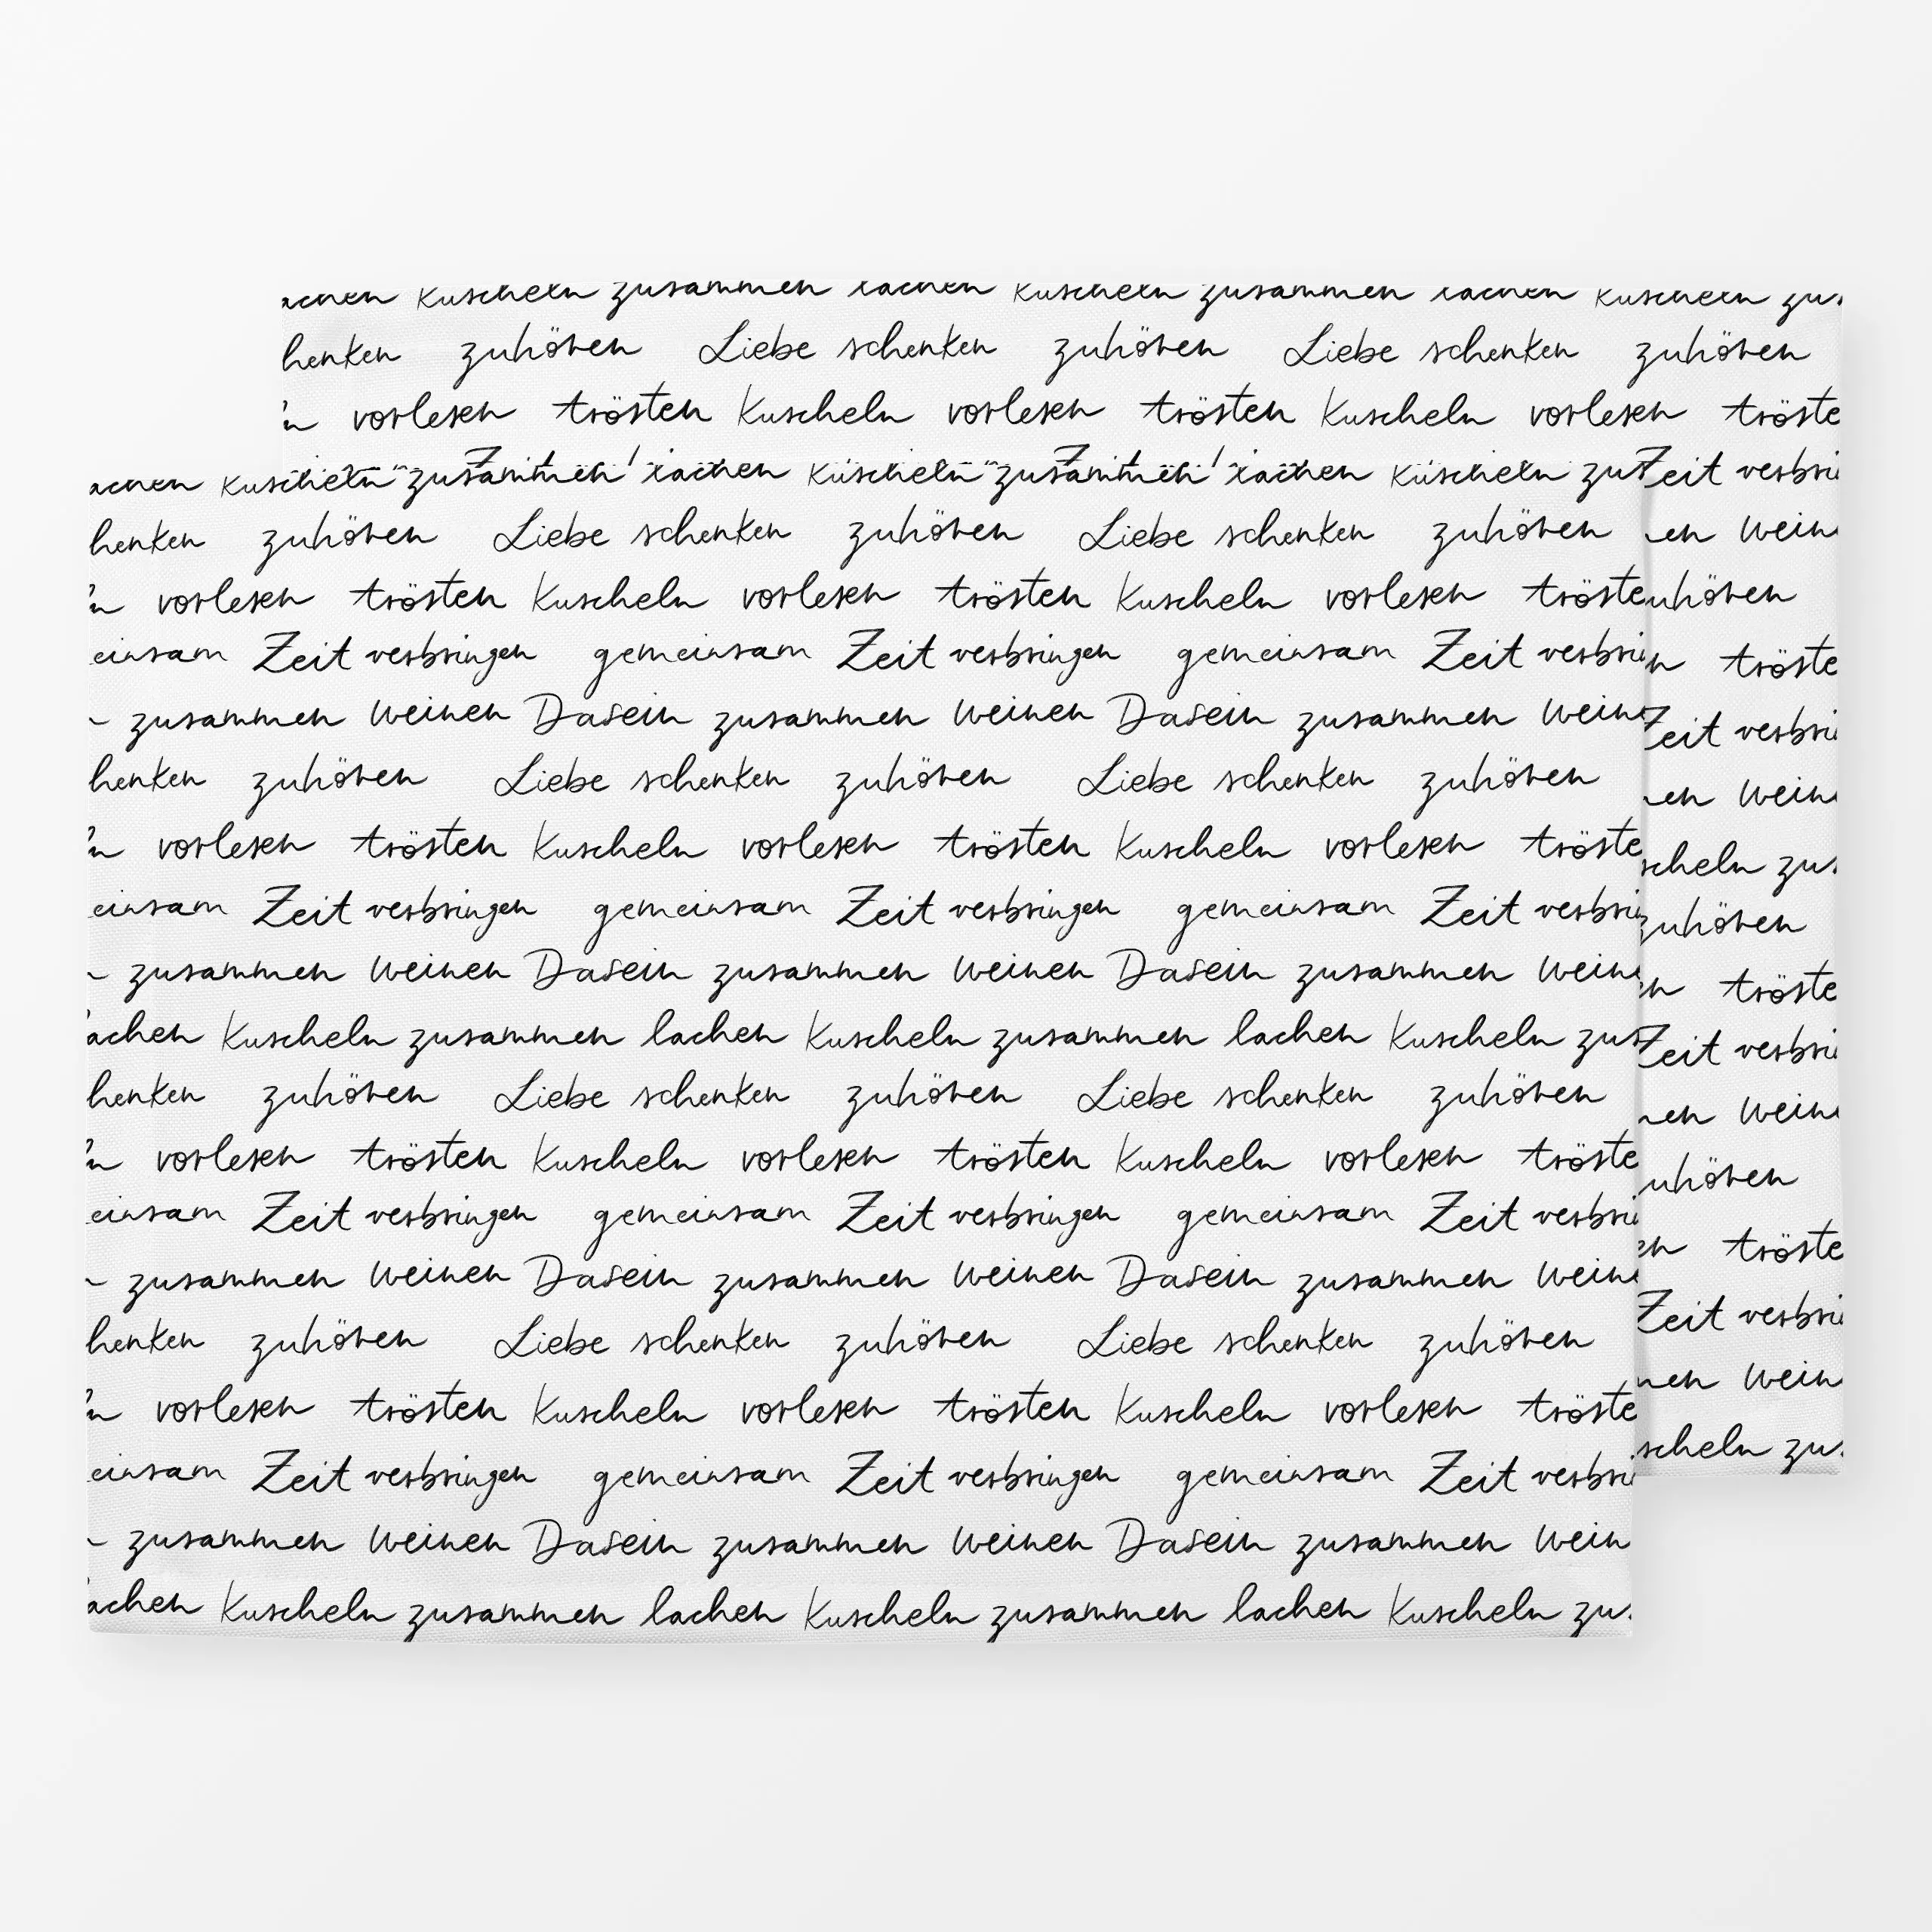 achen Kuscheln zusammen lachen Kuscheln zusammen lachen Kuscheln zus
henken zuhören Liebe schenken zuhören Liebe schenken zuhören
n vorlesen trösten Kuscheln vorlesen trösten Kuscheln vorlesen tröste
achen Kuscheln zusammen lachen Kuscheln zusammen lachen Kuscheln zus
henken zuhören Liebe schenken zuhören Liebe schenken zuhören
n vorlesen trösten Kuscheln vorlesen trösten Kuscheln vorlesen tröste
einsam Zeit verbringen gemeinsam Zeit verbringen gemeinsam Zeit verbri
zusammen weinen Dasein zusammen weinen Dasein zusammen weine
henken zuhören Liebe schenken zuhören Liebe schenken zuhören
n vorlesen trösten Kuscheln vorlesen trösten Kuscheln vorlesen tröste
einsam Zeit verbringen gemeinsam Zeit verbringen gemeinsam Zeit verbri
zusammen weinen Dasein zusammen weinen Dasein zusammen weine
achen Kuscheln zusammen lachen Kuscheln zusammen lachen Kuscheln zus
henken zuhören Liebe schenken zuhören Liebe schenken zuhören
n vorlesen trösten Kuscheln vorlesen trösten Kuscheln vorlesen tröste
einsam Zeit verbringen gemeinsam Zeit verbringen gemeinsam Zeit verbri
zusammen weinen Dasein zusammen weinen Dasein zusammen weine
henken zuhören Liebe schenken zuhören Liebe schenken zuhören
n vorlesen trösten Kuscheln vorlesen trösten Kuscheln vorlesen tröste
einsam Zeit verbringen gemeinsam Zeit verbringen gemeinsam Zeit verbri
zusammen weinen Dasein zusammen weinen Dasein zusammen wein
achen Kuscheln zusammen lachen Kuscheln zusammen lachen Kuscheln zu
Zeit verbri
en wein
uhören
n tröste
Zeit verbri
en wein
scheln zus
zuhören
n tröste
Zeit verbri
nen wein
uhören
en tröste
Zeit verbri
nen wein
scheln zu